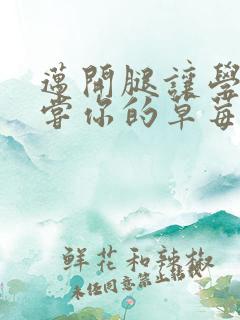 邁開腿讓學
嘗你的草莓
鮮花和辣椒
未经同意禁止转载